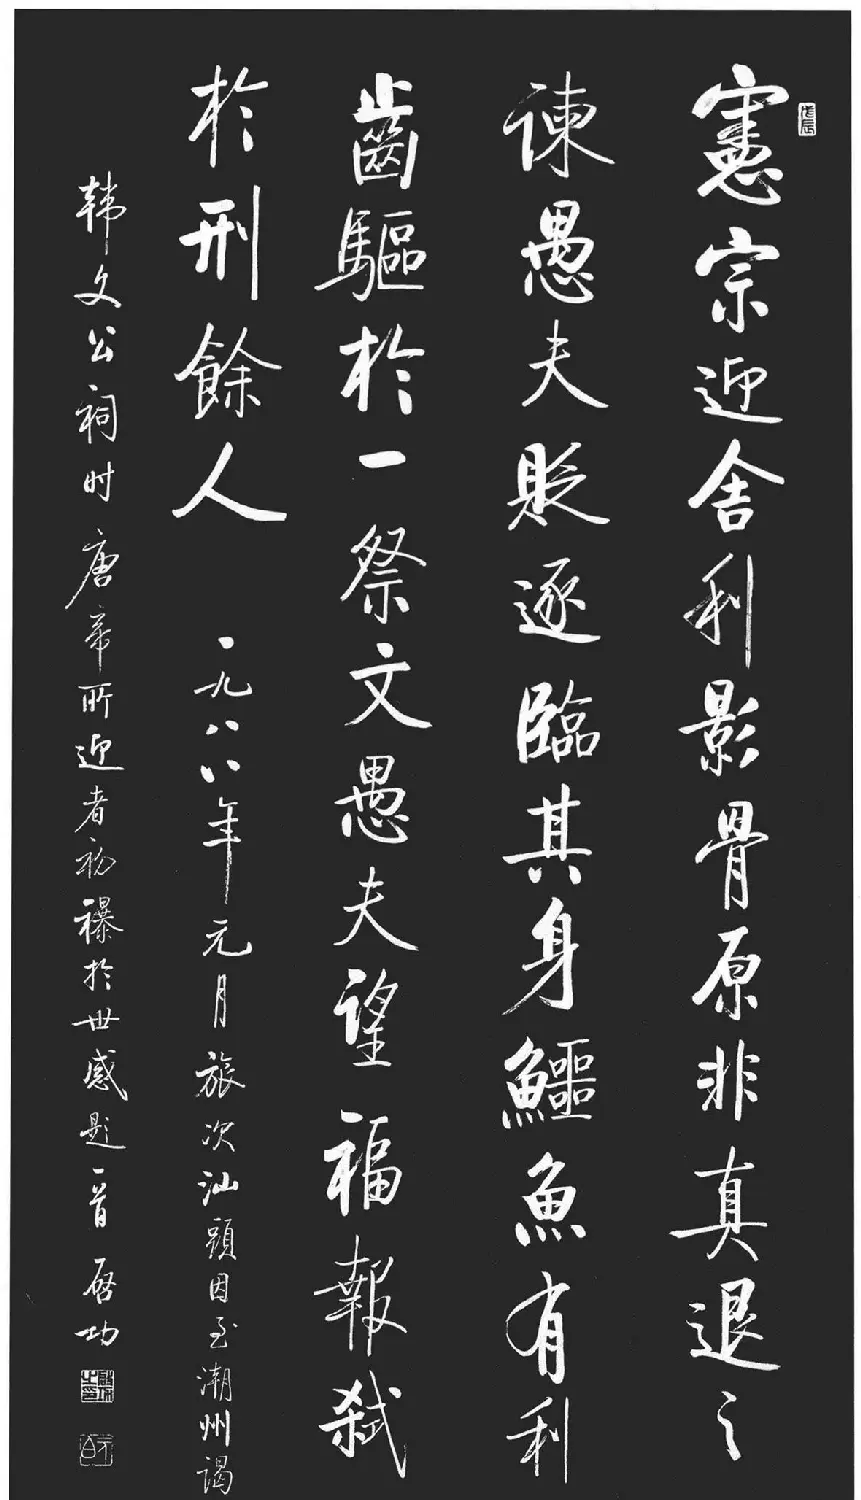 戊辰
憲宗迎舍利影骨原非真退之
諫愚夫貶逐臨其身鱷魚有利
齒驅於一祭文愚夫望福報弒
於刑餘人
一九八八年元月旅次汕頭因至潮州謁
韩文公祠时唐帝所迎者初襮於世感题一首 启功
元白